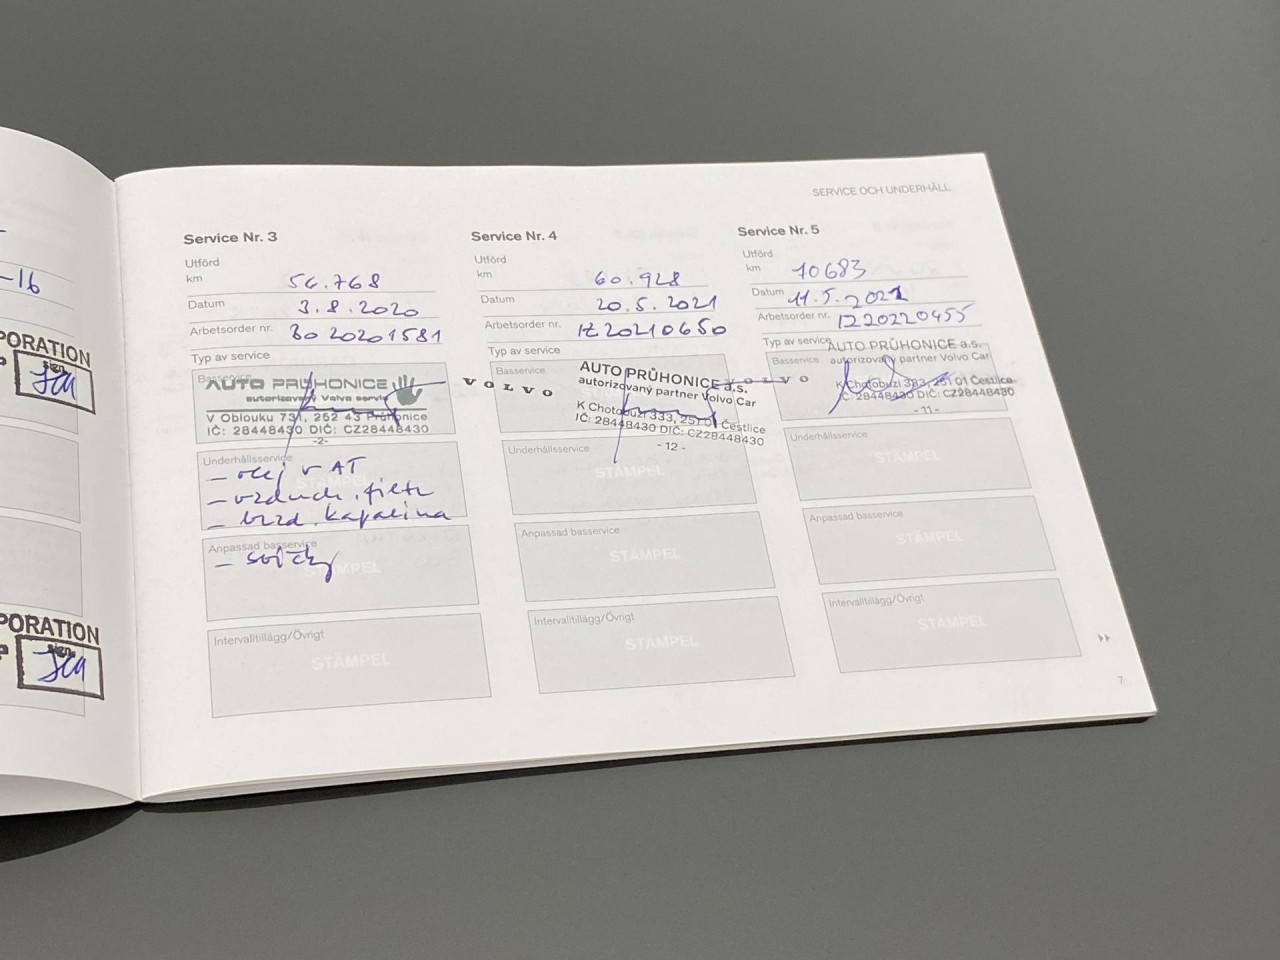 -16
PORATION
sign.
PORATION
sign.
SERVICE OCH UNDERHÅLL
Service Nr. 3
Utförd
km 56.768
Datum 3.8.2020
Arbetsorder nr. BO 20201581
Typ av service
Basservice
AUTO PRŮHONICE
autorizovaný Volvo servis
V Oblouku 731, 252 43 Průhonice
IČ: 28448430 DIČ: CZ28448430
-2-
Underhållsservice
STÄMPEL
- olej v AT
- vzduch. filtr
- brzd. kapalina
Anpassad basservice
STÄMPEL
- svíčky
Intervalltillägg/Övrigt
STÄMPEL
Service Nr. 4
Utförd
km 60.928
Datum 20.5.2021
Arbetsorder nr. IZ20210650
Typ av service
Basservice
VOLVO
AUTO PRŮHONICE a.s.
autorizovaný partner Volvo Car
K Chotobuzi 333, 251 01 Čestlice
IČ: 28448430 DIČ: CZ28448430
- 12 -
Underhållsservice
STÄMPEL
Anpassad basservice
STÄMPEL
Intervalltillägg/Övrigt
STÄMPEL
Service Nr. 5
Utförd
km 70683
Datum 11.5.2022
Arbetsorder nr. IZ20220455
Typ av service
Basservice
VOLVO
AUTO PRŮHONICE a.s.
autorizovaný partner Volvo Car
K Chotobuzi 333, 251 01 Čestlice
IČ: 28448430 DIČ: CZ28448430
- 11 -
Underhållsservice
STÄMPEL
Anpassad basservice
STÄMPEL
Intervalltillägg/Övrigt
STÄMPEL
7